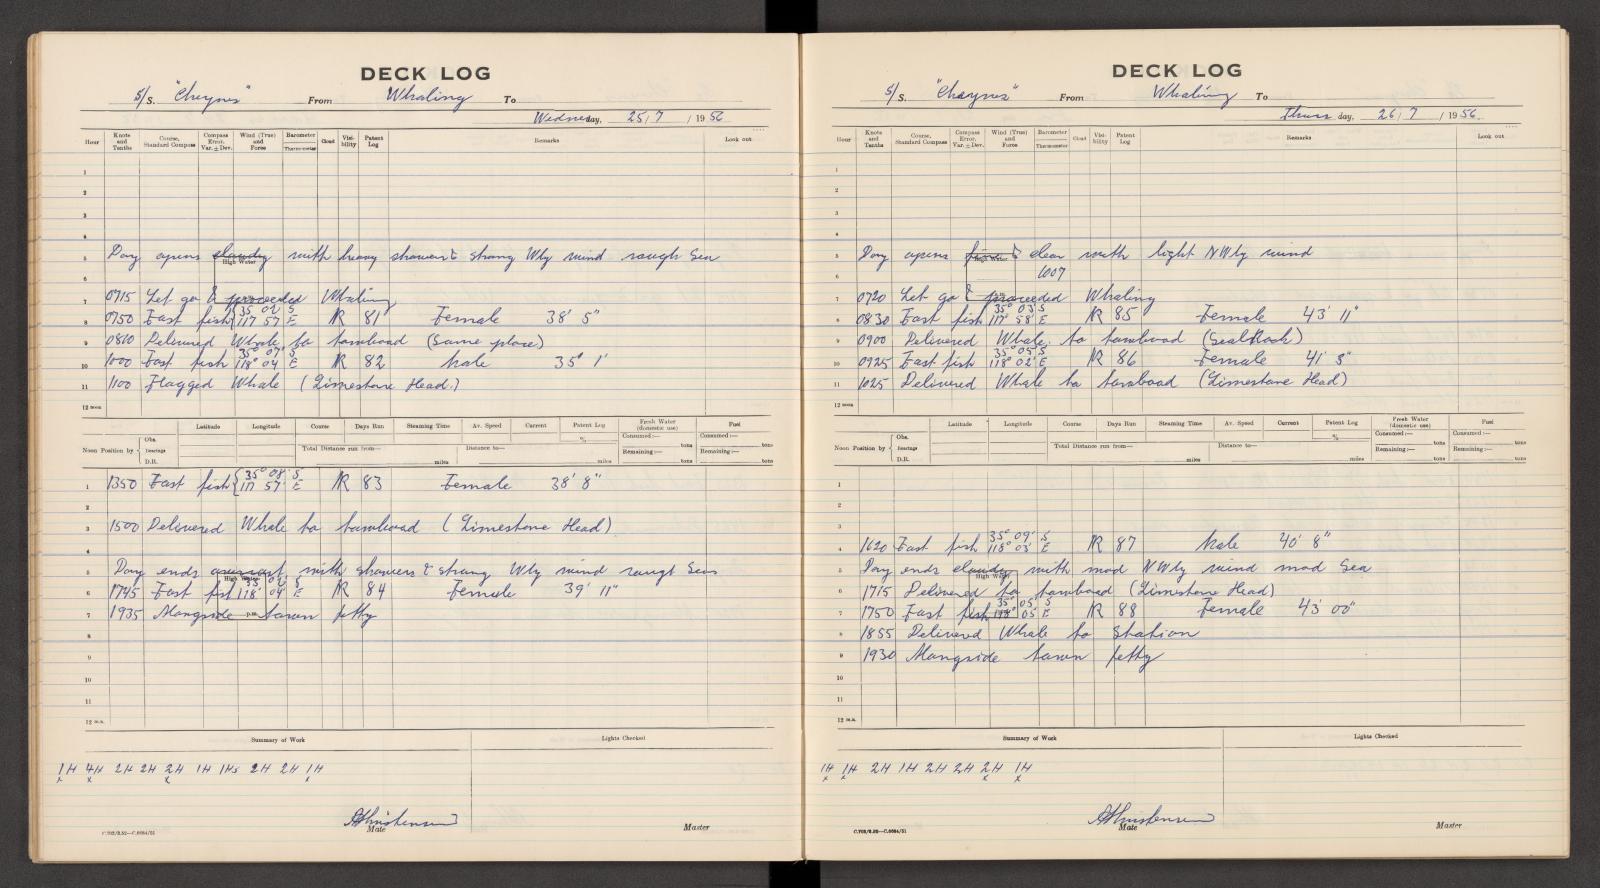 DECK LOG
S/S. "Cheynes" From Whaling To
Wednesday, 25/7/1956
Hour Knots and Tenths Course, Standard Compass Compass Error, Var. ± Dev. Wind (True) and Force Barometer Thermometer Cloud Visibility Patent Log Remarks Look out
1
2
3
4
5 Day opens cloudy with heavy showers & strong Wly wind rough Sea
High Water
6
7 0715 Let go & proceeded Whaling
8 0750 Fast fish { 35° 02' S 117 57 E N 81 Female 38' 5"
9 0810 Delivered Whale to towboad (same place)
10 1000 Fast fish 35° 07' S 118° 04' E N 82 Male 35' 1'
11 1100 Flagged Whale (Limestone Head.)
12 noon
Latitude Longitude Course Days Run Steaming Time Av. Speed Current Patent Log Fresh Water (domestic use) Fuel
Noon Position by { Obs. Bearings D.R. Total Distance run from— miles Distance to— miles % Consumed:— tons Remaining:— tons Consumed:— tons Remaining:— tons
1 1350 Fast fish { 35° 08' S 117 57' E N 83 Female 38' 8"
2
3 1500 Delivered Whale to towboad (Limestone Head)
4
5 Day ends overcast with showers & strong Wly wind rough Seas
High Water
6 1745 Fast fish 118° 04' E N 84 Female 39' 11"
7 1935 Alongside town jetty
p.m.
8
9
10
11
12 m.n.
Summary of Work Lights Checked
1H 4H 2H 2H 2H 1H 1Hs 2H 2H 1H
x x x x
AChristensen
Mate Master
C.702/2.52—C.6684/51
DECK LOG
S/S. "Cheynes" From Whaling To
Thurs day, 26/7/1956
Hour Knots and Tenths Course, Standard Compass Compass Error, Var. ± Dev. Wind (True) and Force Barometer Thermometer Cloud Visibility Patent Log Remarks Look out
1
2
3
4
5 Day opens fine & clear with light NWly wind
High Water
6 1007
7 0720 Let go & proceeded Whaling
8 0830 Fast fish 35° 03' S 117° 58' E N 85 Female 43' 11"
9 0900 Delivered Whale to towboad (Seal Rock)
10 0925 Fast fish 35° 05' S 118° 02' E N 86 Female 41' 3"
11 1025 Delivered Whale to towboad (Limestone Head)
12 noon
Latitude Longitude Course Days Run Steaming Time Av. Speed Current Patent Log Fresh Water (domestic use) Fuel
Noon Position by { Obs. Bearings D.R. Total Distance run from— miles Distance to— miles % Consumed:— tons Remaining:— tons Consumed:— tons Remaining:— tons
1
2
3
4 1620 Fast fish 35° 09' S 118° 03' E N 87 Male 40' 8"
5 Day ends cloudy with mod NWly wind mod Sea
High Water
6 1715 Delivered to towboad (Limestone Head)
7 1750 Fast fish 35° 05' S 118° 05' E N 88 Female 43' 00"
8 1855 Delivered Whale to Station
9 1930 Alongside town jetty
10
11
12 m.n.
Summary of Work Lights Checked
1H 1H 2H 1H 2H 2H 2H 1H
x x x x
AChristensen
Mate Master
C.702/2.52—C.6684/51